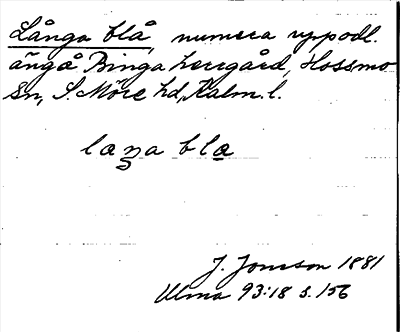 Långa blå, numera uppodl.
äng å Binga herrgård, Hossmo
sn, S. Möre hd, Kalm. l.
laŋa bla
J. Jonsson 1881
Ulma 93:18 s. 156